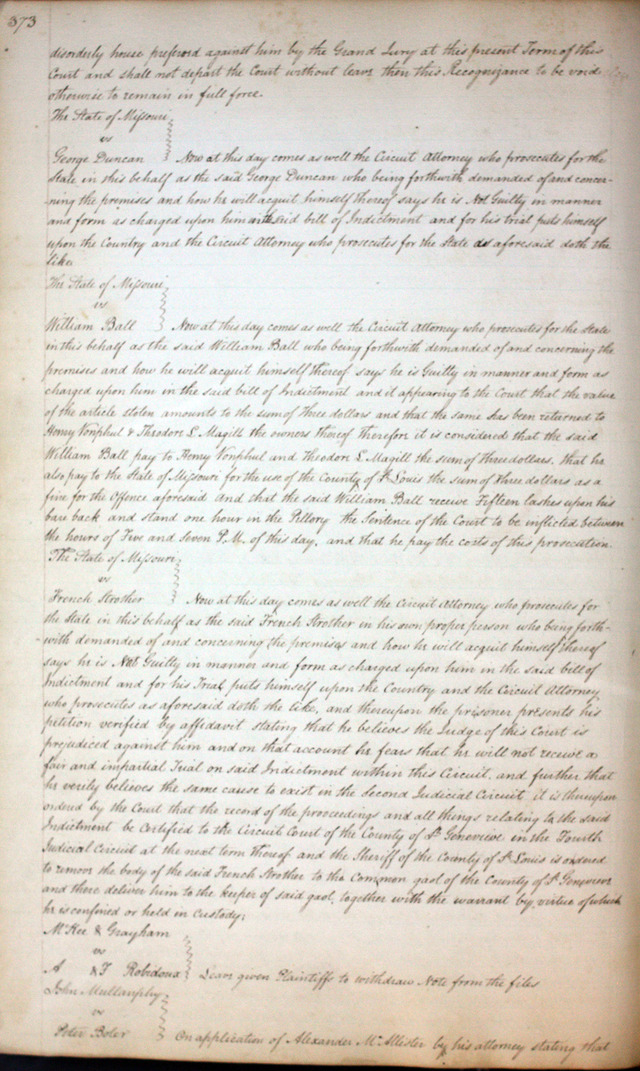 373
disorderly house preferred against him by the Grand Jury at this present Term of this
Court and shall not depart the Court without leave then this Recognizance to be void
otherwise to remain in full force.
The State of Missouri
vs
George Duncan Now at this day comes as well the Circuit Attorney who prosecutes for the
State in this behalf as the said George Duncan who being forthwith demanded of and concer-
-ning the premises and how he will acquit himself thereof says he is Not Guilty in manner
and form as charged upon him in the said bill of Indictment and for his trial puts himself
upon the Country and the Circuit Attorney who prosecutes for the State as aforesaid doth the
like.
The State of Missouri
vs
William Ball Now at this day comes as well the Circuit Attorney who prosecutes for the State
in this behalf as the said William Ball who being forthwith demanded of and concerning the
premises and how he will acquit himself thereof says he is Guilty in manner and form as
charged upon him in the said bill of Indictment and it appearing to the Court that the value
of the article stolen amounts to the sum of three dollars and that the same has been returned to
Henry Vonphul & Theodore L. Magill the owners thereof therefore it is considered that the said
William Ball pay to Henry Vonphul and Theodore L Magill the sum of three dollars. that he
also pay to the State of Missouri for the use of the County of St Louis the sum of three dollars as a
fine for the Offence aforesaid And that the said William Ball receive Fifteen lashes upon his
bare back and stand one hour in the Pillory the Sentence of the Court to be inflicted between
the hours of Five and Seven P.M. of this day, and that he pay the costs of this prosecution.
The State of Missouri
vs
French Strother Now at this day comes as well the Circuit Attorney who prosecutes for
the State in this behalf as the said French Strother in his own proper person who being forth-
-with demanded of and concerning the premises and how he will acquit himself thereof
says he is Not Guilty in manner and form as charged upon him in the said bill of
Indictment and for his Trial puts himself upon the Country and the Circuit Attorney
who prosecutes as aforesaid doth the like, and thereupon the prisoner presents his
petition verified by affidavit stating that he believes the Judge of this Court is
prejudiced against him and on that account he fears that he will not receive a
fair and impartial Trial on said Indictment within this Circuit, and further that
he verily believes the same cause to exist in the Second Judicial Circuit it is thereupon
ordered by the Court that the record of the proceedings and all things relating to the said
Indictment be Certified to the Circuit Court of the County of St Genevieve in the Fourth
Judicial Circuit at the next term thereof and the Sheriff of the County of St Louis is ordered
to remove the body of the said French Strother to the Common gaol of the County of St Genevieve
and there deliver him to the keeper of said gaol, together with the warrant by virtue of which
he is confined or held in Custody;
McKee & Grayham
vs
A & F Robidoux Leave given Plaintiffs to withdraw Note from the files
John Mullanphy
vs
Peter Boler On application of Alexander McAllester by his attorney stating that